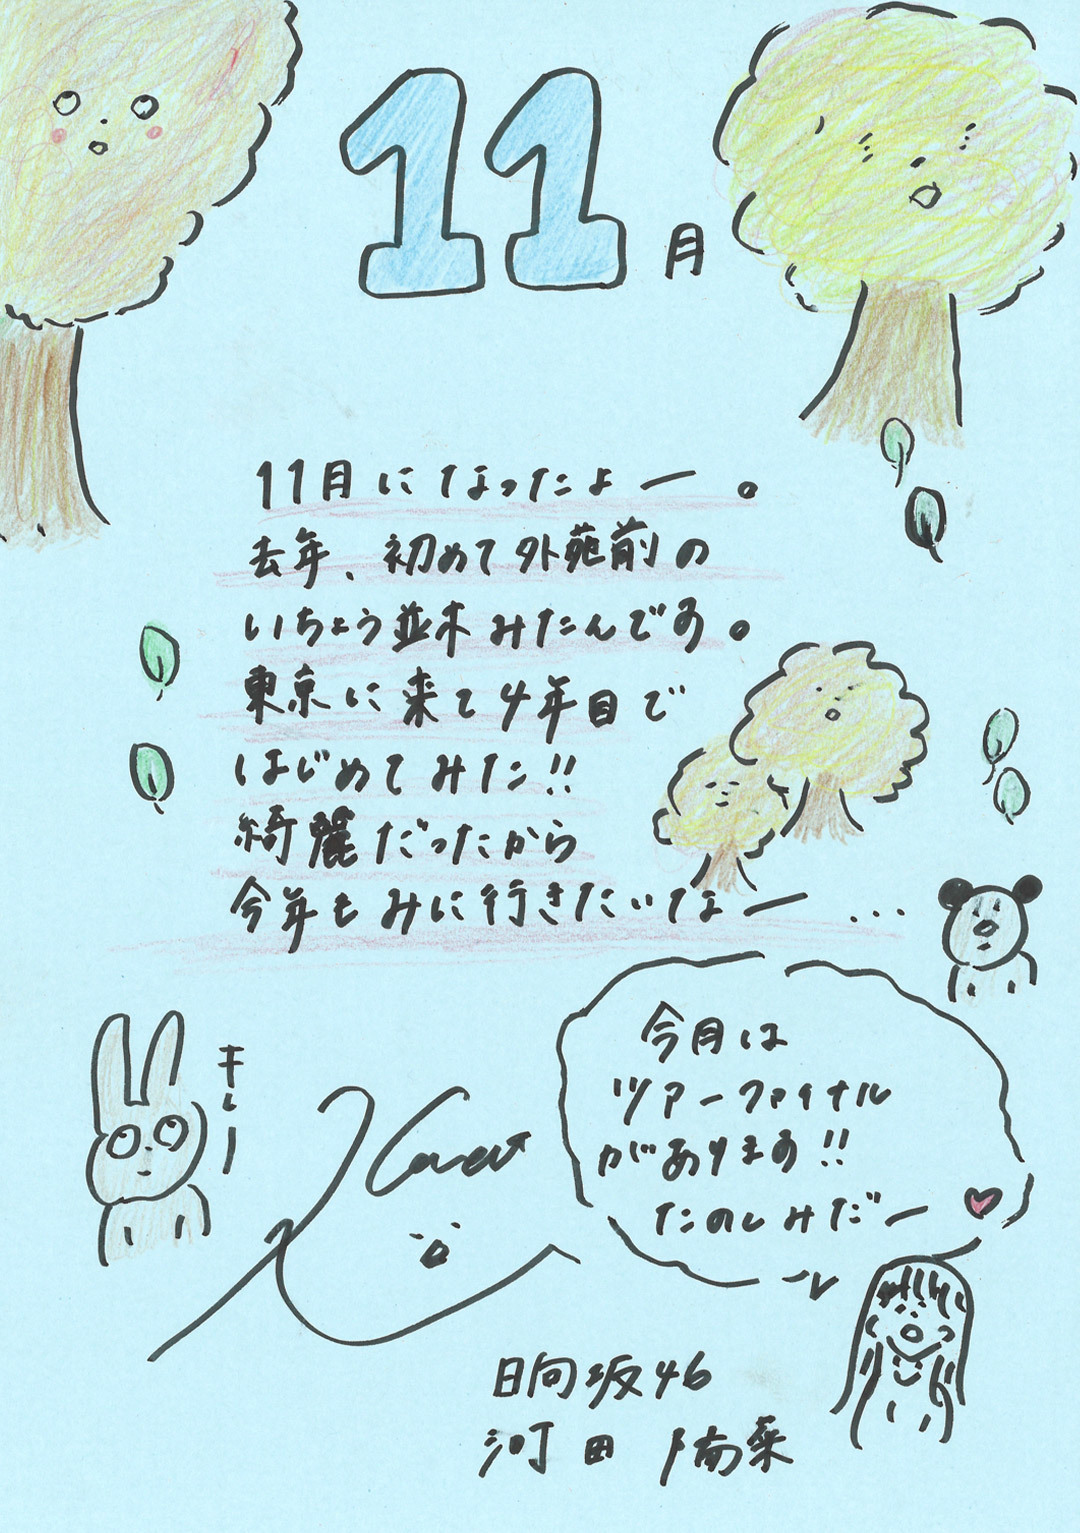 11月
11月になったよー。
去年、初めて外苑前の
いちょう並木みたんです。
東京に来て4年目で
はじめてみた!!
綺麗だったから
今年もみに行きたいなー...
キレー
今月は
ツアーファイナル
があります!!
たのしみだー
日向坂46
河田陽菜